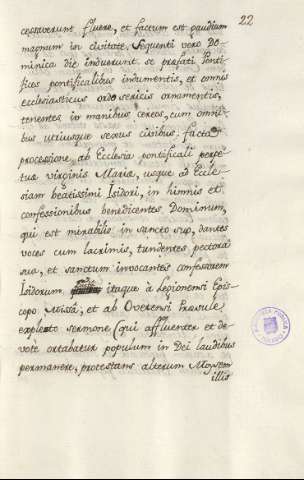 22
cestaverunt fluere, et factum est gaudium
magnum in civitate. Sequenti vero Do-
minica die induerunt se prefati Ponti-
fices pontificalibus indumentis, et omnis
ecclesiasticus ordo sericis ornamentis,
tenentes in manibus cereos, cum omni-
bus utriusque sexus civibus. Facta
processione, ab Ecclesia pontificali perpe-
tuæ virginis Mariæ, usque ad Eccle-
siam beatissimi Isidori, in himnis et
confessionibus benedicentes Dominum,
qui est mirabilis in sancto suo, dantes
voces cum lacrimis, tundentes pectora
sua, et sanctum invocantes confessorem
Isidorum. itaque à Legionensi Epis-
copo Missâ, et ab Overensi Præsule
expleto sermone (qui affluenter et de-
vote ortabatur populum in Dei laudibus
permanere, protestans alterum Moysem
illis